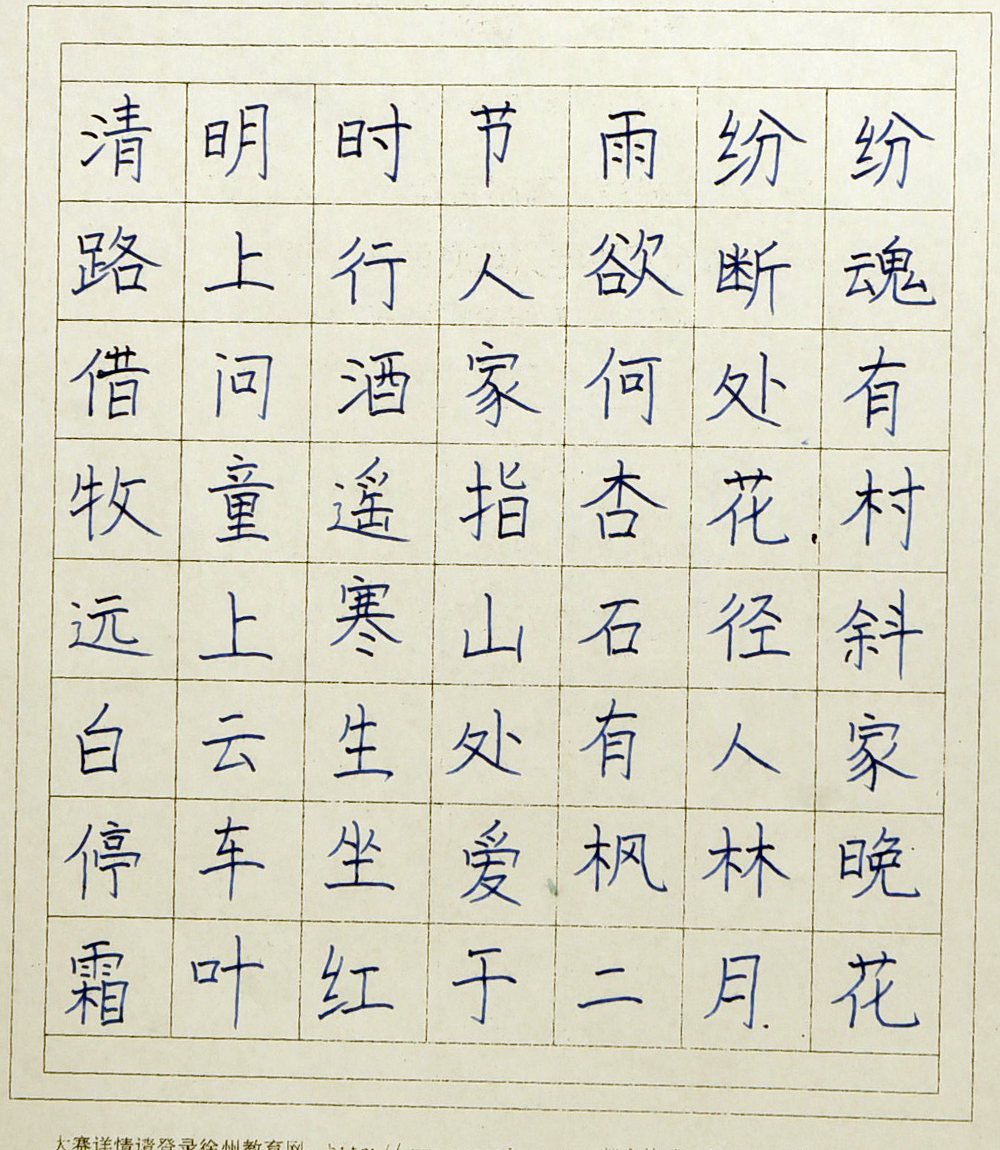 清明时节雨纷纷
路上行人欲断魂
借问酒家何处有
牧童遥指杏花村
远上寒山石径斜
白云生处有人家
停车坐爱枫林晚
霜叶红于二月花
大赛详情请登录徐州教育网